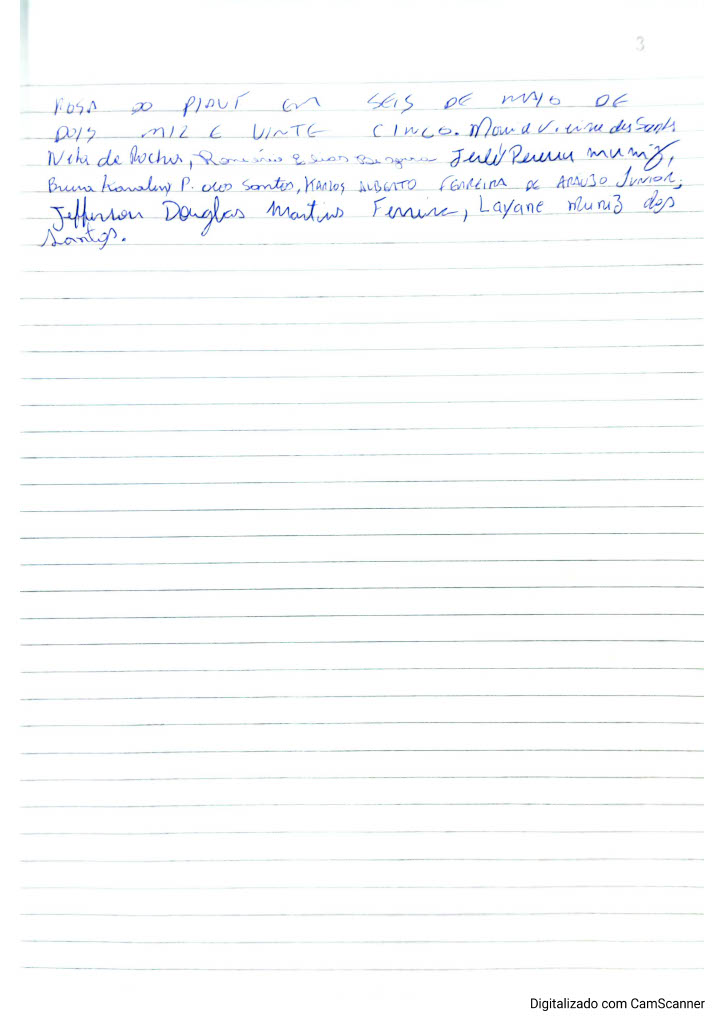 3
ROSA DO PIAUÍ EM SEIS DE MAIO DE
DOIS MIL E VINTE CINCO. Vieira dos Santos
Neta da Rocha, Pereira muniz,
Bruna P. dos Santos, KARLOS ALBERTO FERREIRA DE ARAUJO JUNIOR,
Jefferson Douglas Martins Ferreira, Layane muniz dos
Santos.
Digitalizado com CamScanner